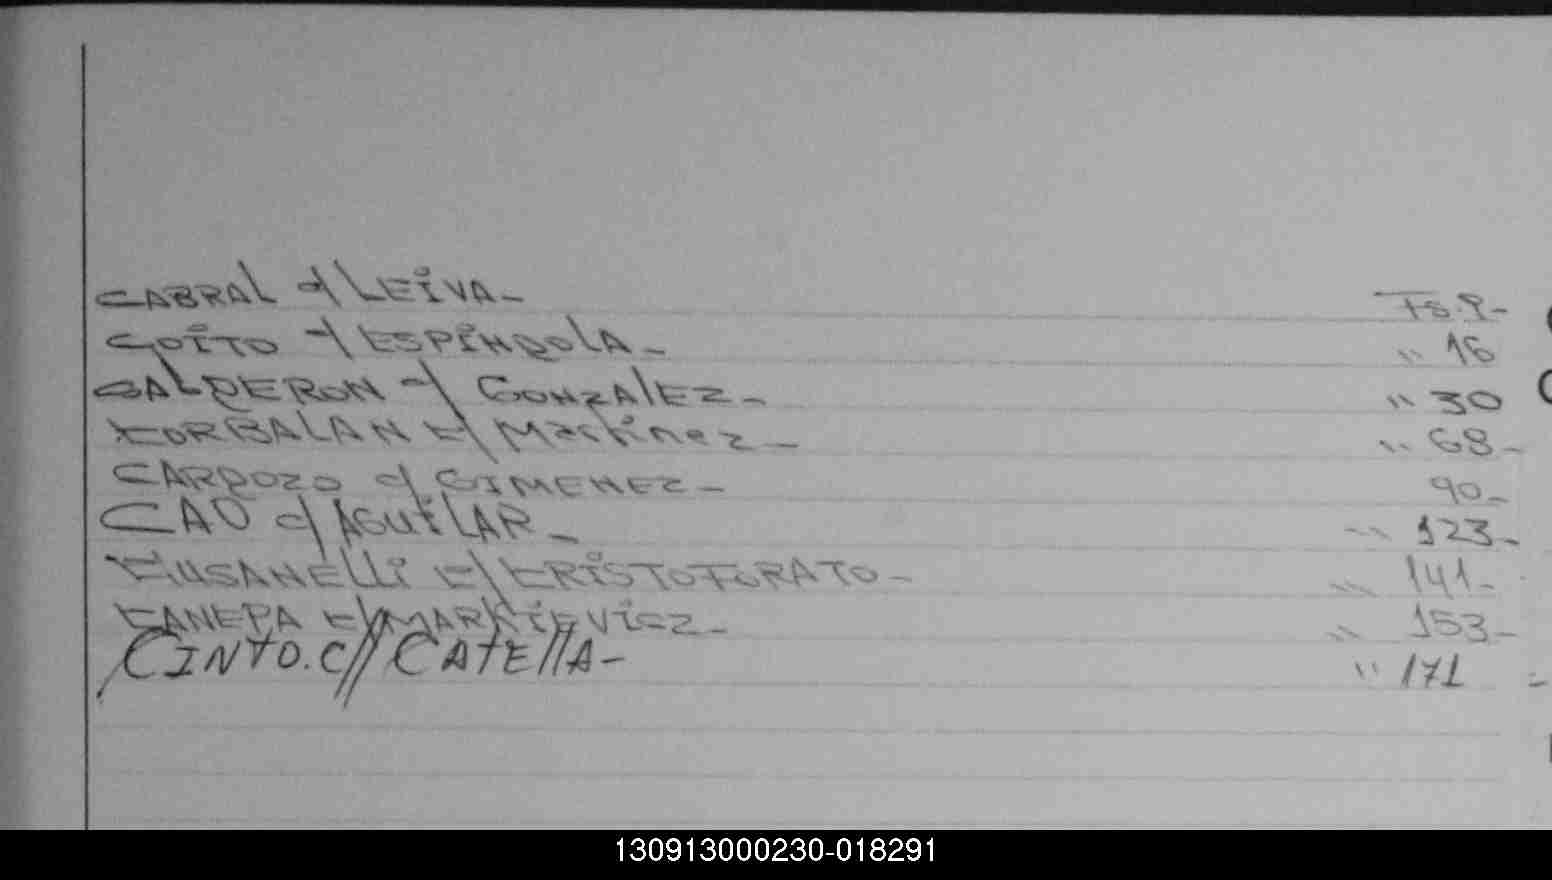 CABRAL c/ LEIVA- Fs. 9-
GOITO c/ ESPINDOLA- " 16
CALDERON c/ GONZALEZ- " 30
CORBALAN c/ Martinez- " 68-
CARDOZO c/ GIMENEZ- 90-
CAO c/ AGUILAR- " 123-
c/ CRISTOFORATO- " 141-
CANEPA c/ MARKIEVicz- " 153-
CINTO. C// CATELLA- " 171
130913000230-018291